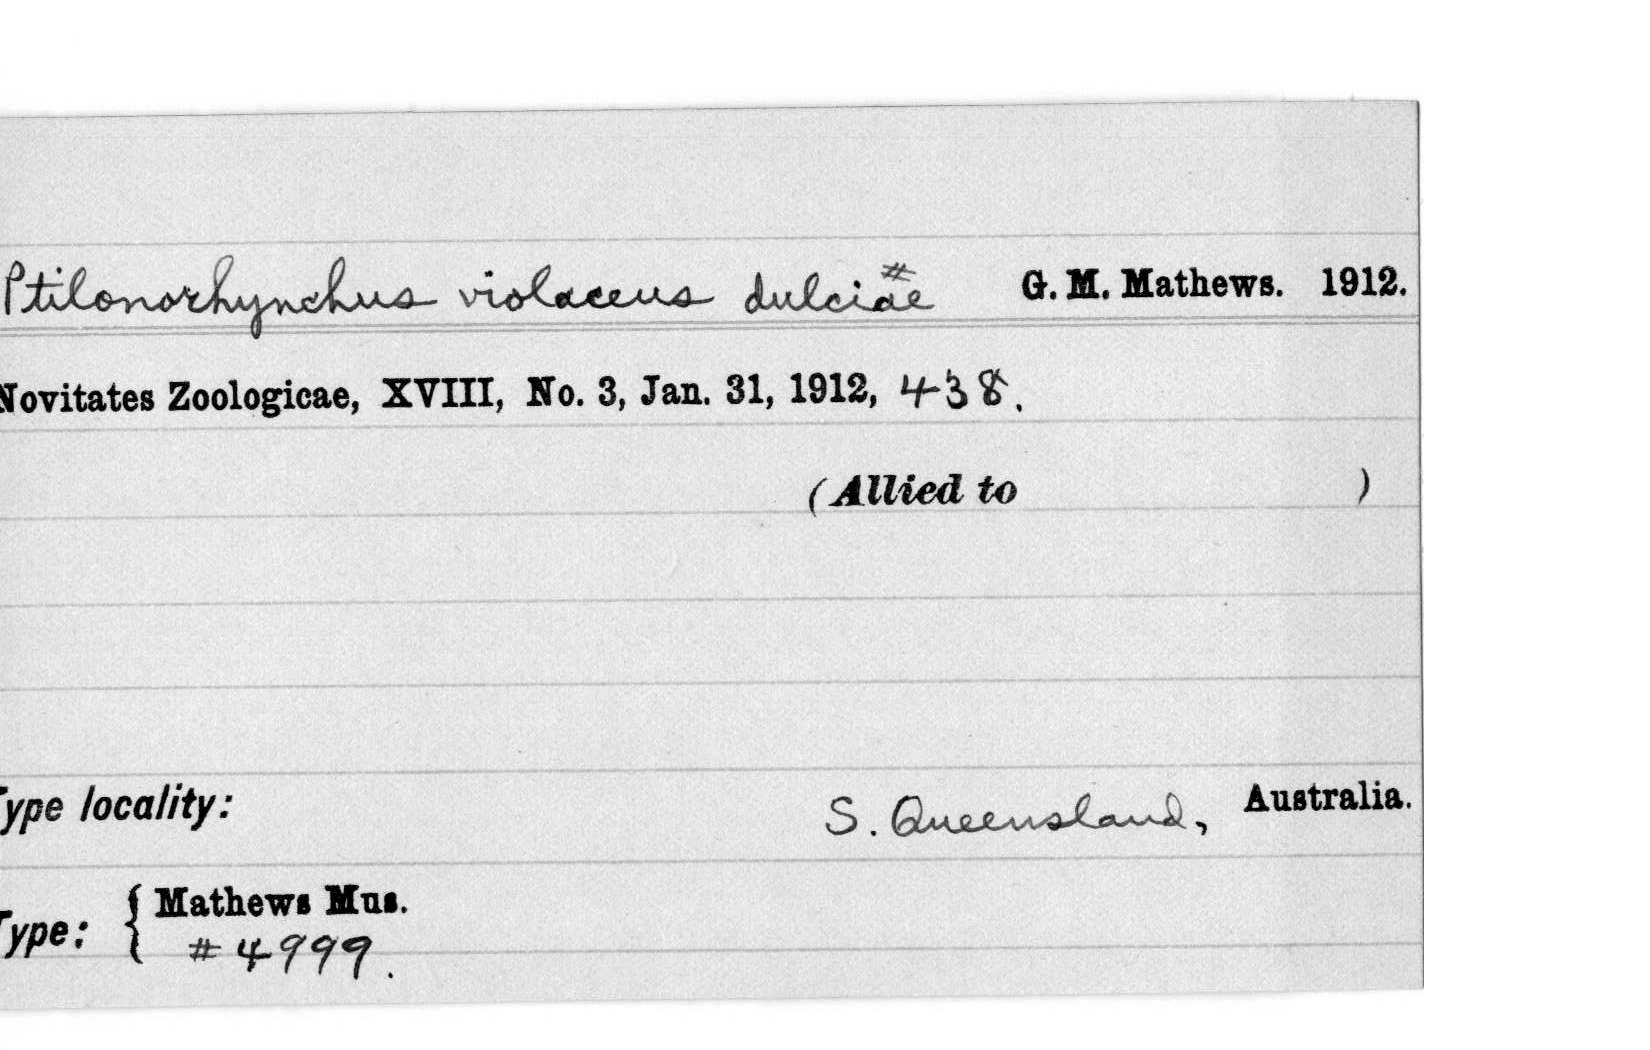 Ptilonorhynchus violaceus dulciae # G. M. Mathews. 1912.
Novitates Zoologicae, XVIII, No. 3, Jan. 31, 1912, 438.
(Allied to )
Type locality: S. Queensland, Australia.
Type: { Mathews Mus.
# 4999.